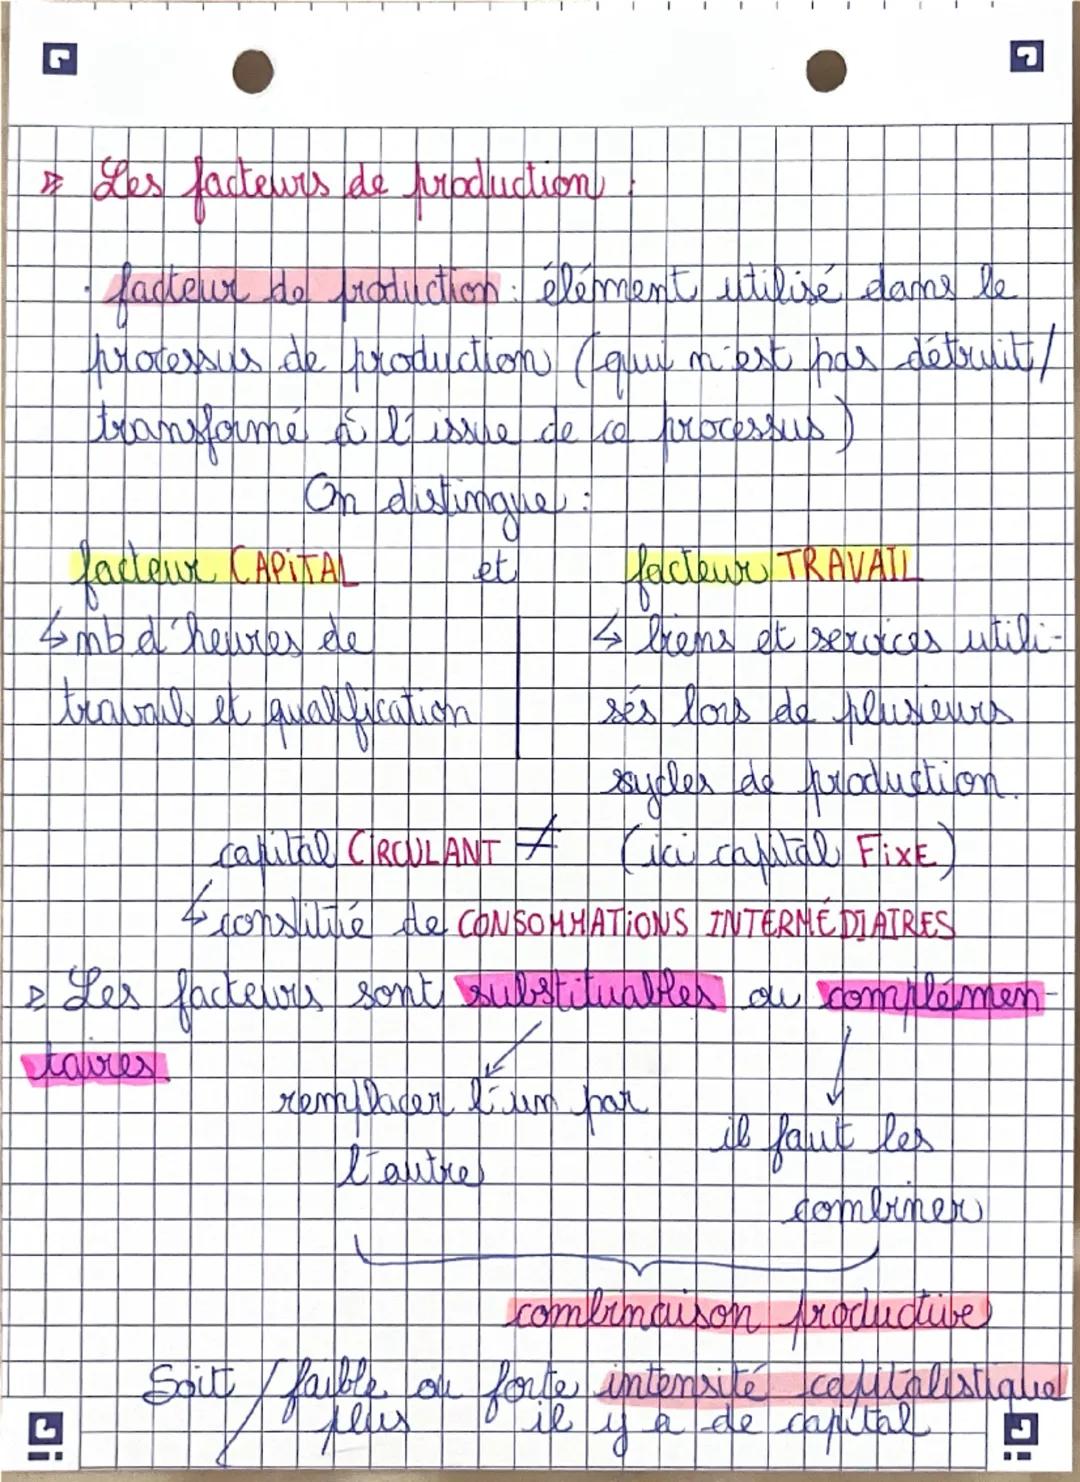 Les facteurs de production :
· facteur de production : élément utilisé dans le
processus de production (qui n'est pas détruit/
transformé à l'issue de ce processus)
On distingue :
facteur CAPITAL et facteur TRAVAIL
↳ nb d'heures de
travail et qualification
↳ biens et services utili-
sés lors de plusieurs
sycles de production.
capital CIRCULANT ≠ (ici capital FIXE)
↳ constitué de CONSOMMATIONS INTERMÉDIAIRES
Les facteurs sont substituables ou complémen-
taires
remplacer l'un par
l'autre
il faut les
combiner
combinaison productive
Soit / faible ou forte intensité capitalistique
plus il y a de capital